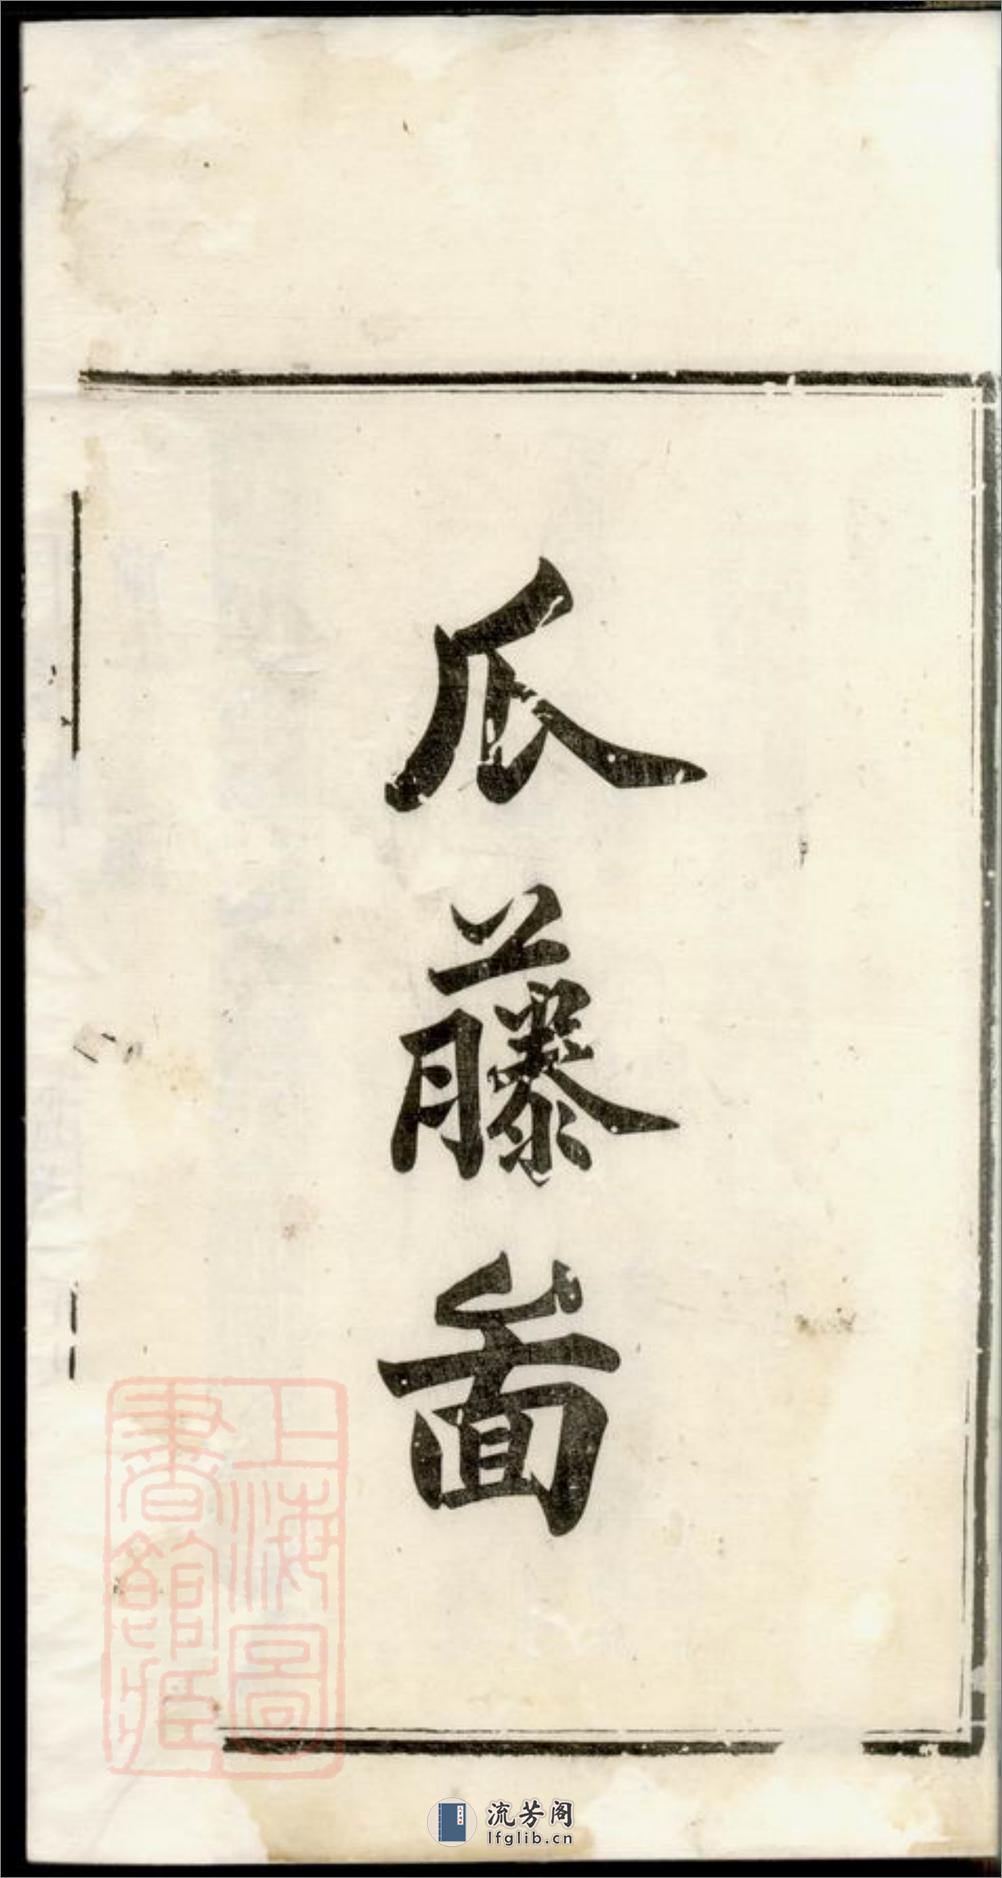 瓜藤
上海圖
書館藏
流芳阁
lfglib.cn